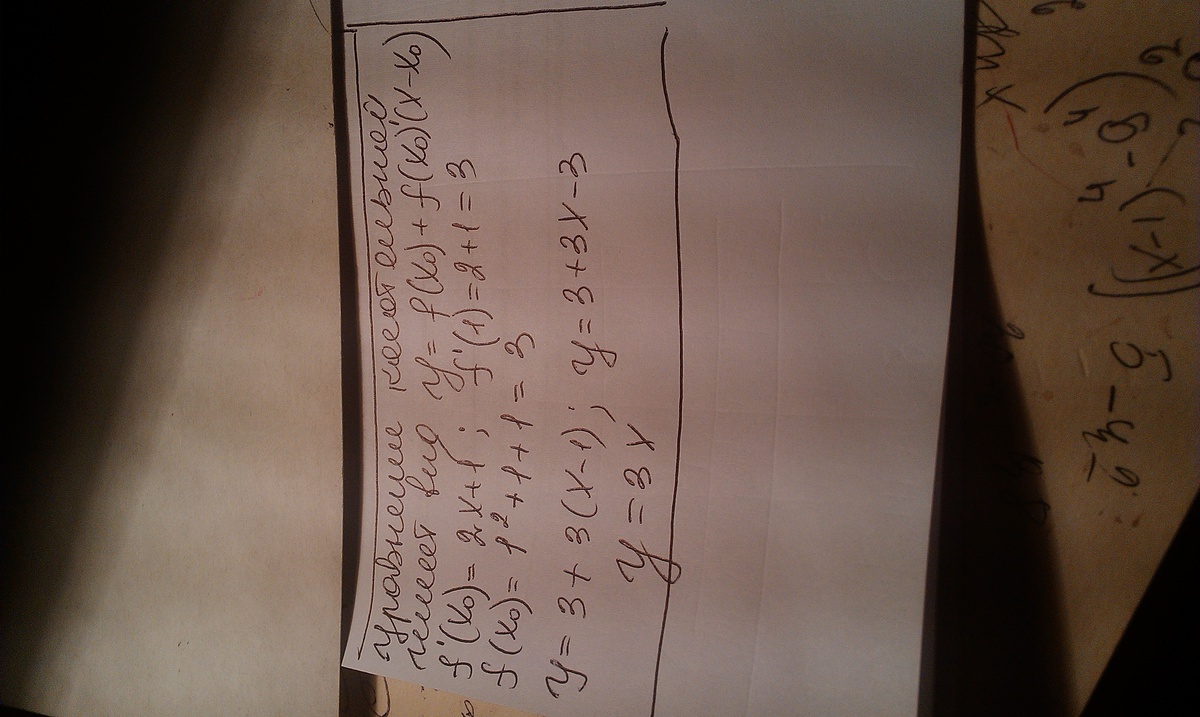 Уравнение касательной
имеет вид y = f(x₀) + f(x₀)'(x-x₀)
f'(x₀) = 2x+1; f'(1) = 2+1 = 3
f(x₀) = 1² + 1 + 1 = 3
y = 3 + 3(x-1); y = 3+3x-3
y = 3x